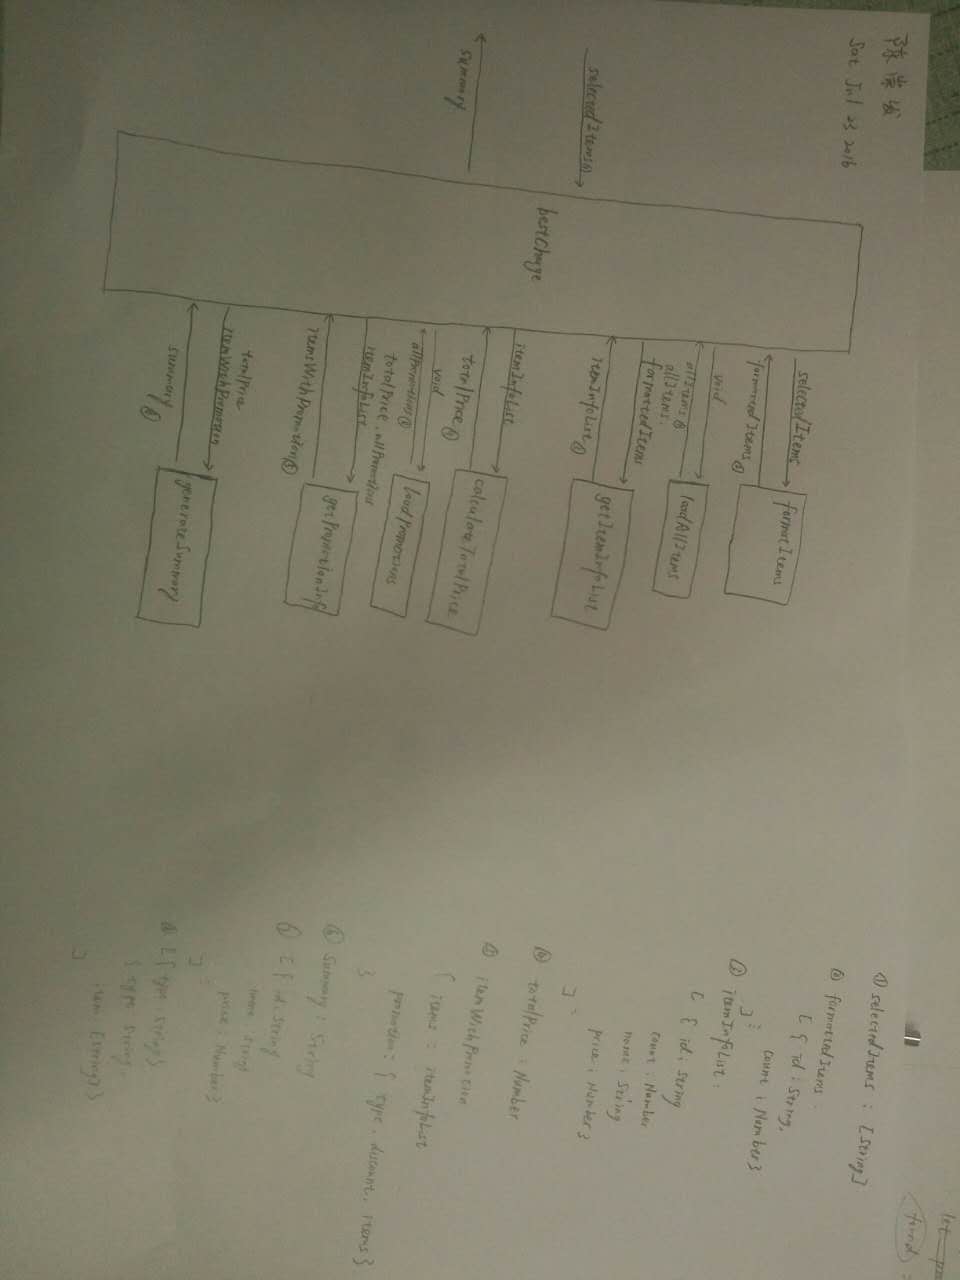 Sat Jul 23 2016
selectedItems①
summary
bestCharge
selectedItems
formattedItems②
formatItems
void
allItems
loadAllItems
formattedItems
allItems
itemInfoList③
getItemInfoList
itemInfoList
totalPrice④
calculateTotalPrice
void
allPromotions
loadPromotions
itemInfoList
totalPrice, allPromotions
itemsWithPromotion⑤
getPromotionInfo
itemWithPromotion
totalPrice
summary⑥
generateSummary
① selectedItems : [String]
② formattedItems :
[ { id : String,
count : Number}
]
③ itemInfoList :
[ { id : String
count : Number
name : String
price : Number}
]
④ totalPrice : Number
⑤ itemWithPromotion
{ items : itemInfoList
promotion : { type, discount, items }
}
⑥ Summary : String
[ { id : String
name : String
price : Number}
]
⑧ [ { type : String }
{ type : String
item : [String] }
]
let